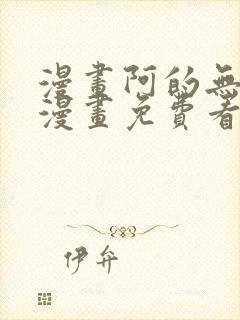 漫畫阿的無
漫畫免費看
伊弁